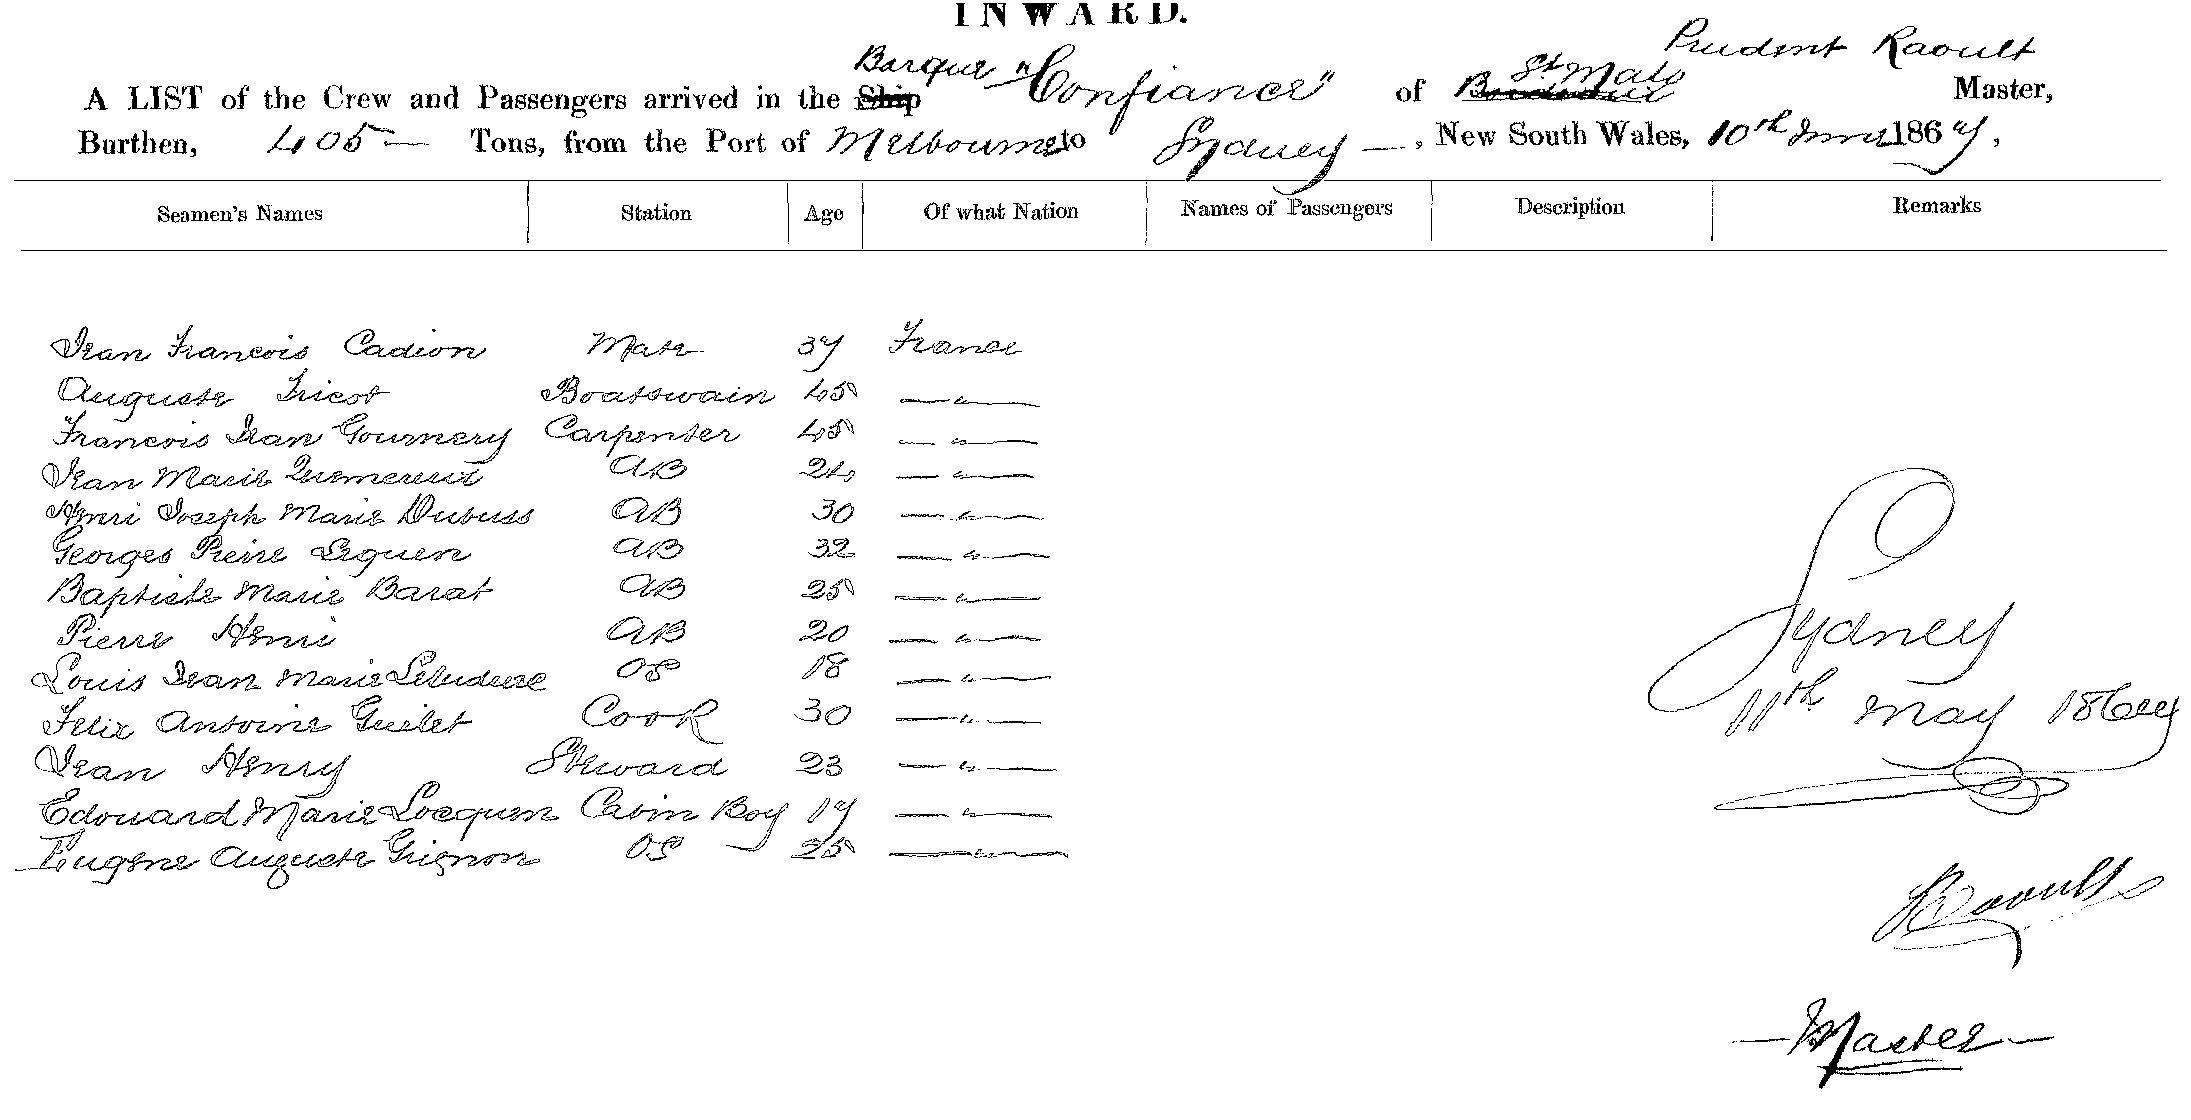 INWARD.
Prudent Raoult
Barque "Confiance" St Malo
A LIST of the Crew and Passengers arrived in the Ship of Bordeaux Master,
Burthen, 405 — Tons, from the Port of Melbourne to Sydney —, New South Wales, 10th 1867,
Seamen's Names Station Age Of what Nation Names of Passengers Description Remarks
Jean Francois Cadion Mate 37 France
Auguste Tricot Boatswain 45 — " —
Francois Jean Gournery Carpenter 45 — " —
Jean Marie AB 24 — " —
Henri Joseph Marie Dubuss AB 30 — " —
Georges Pierre Leguen AB 32 — " —
Baptiste Marie Barat AB 25 — " —
Pierre Henri AB 20 — " —
Louis Jean Marie OS 18 — " —
Felix Antoine Guilet Cook 30 — " —
Jean Henry Steward 23 — " —
Edouard Marie Locquen Cabin Boy 17 — " —
Eugene Auguste Grignon OS 25 — " —
Sydney
11th May 1867
PRaoult
— Master —